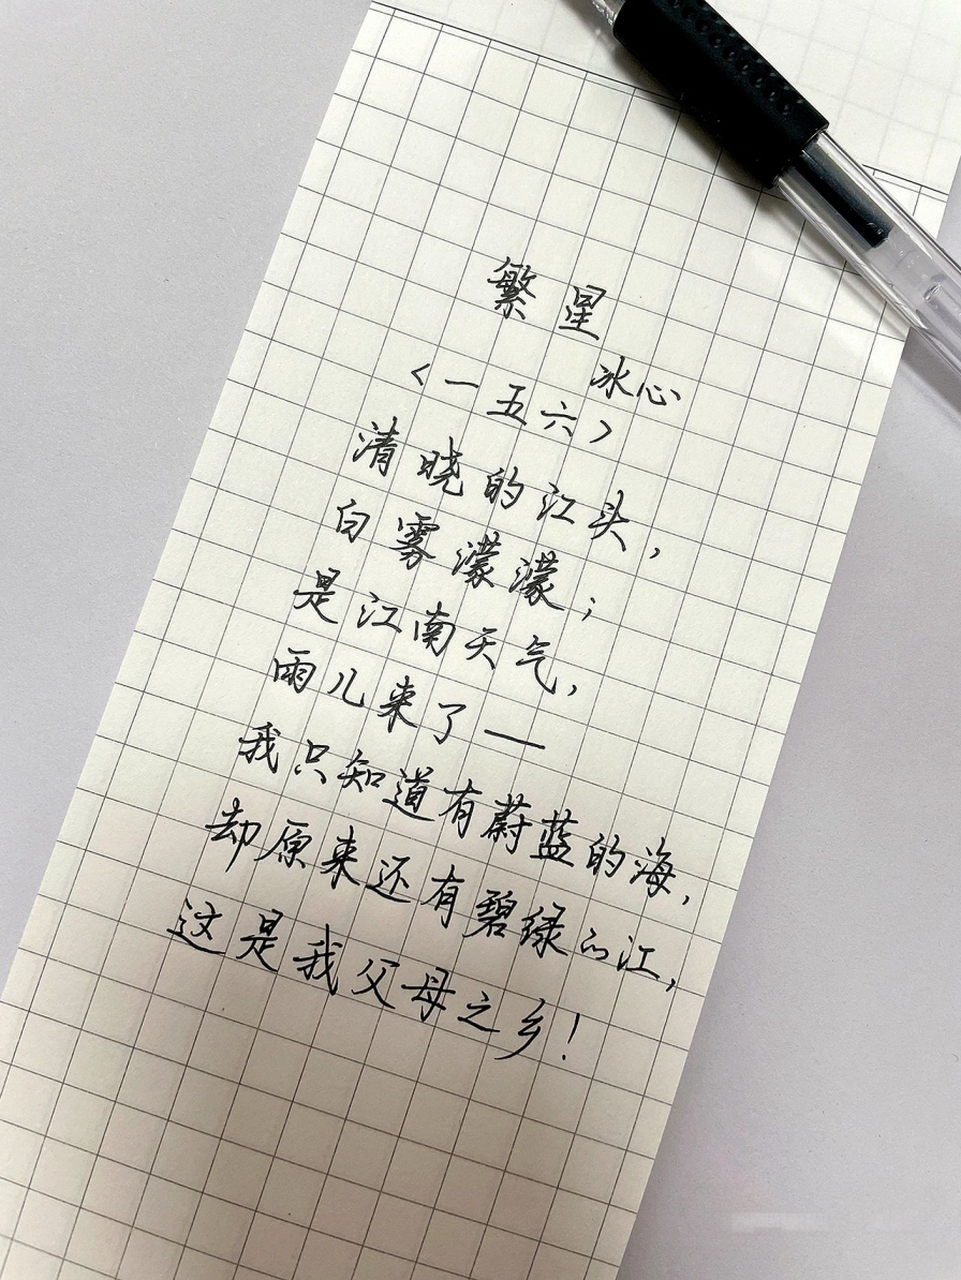 繁星
冰心
<一五六>
清晓的江头,
白雾濛濛;
是江南天气,
雨儿来了—
我只知道有蔚蓝的海,
却原来还有碧绿的江,
这是我父母之乡!